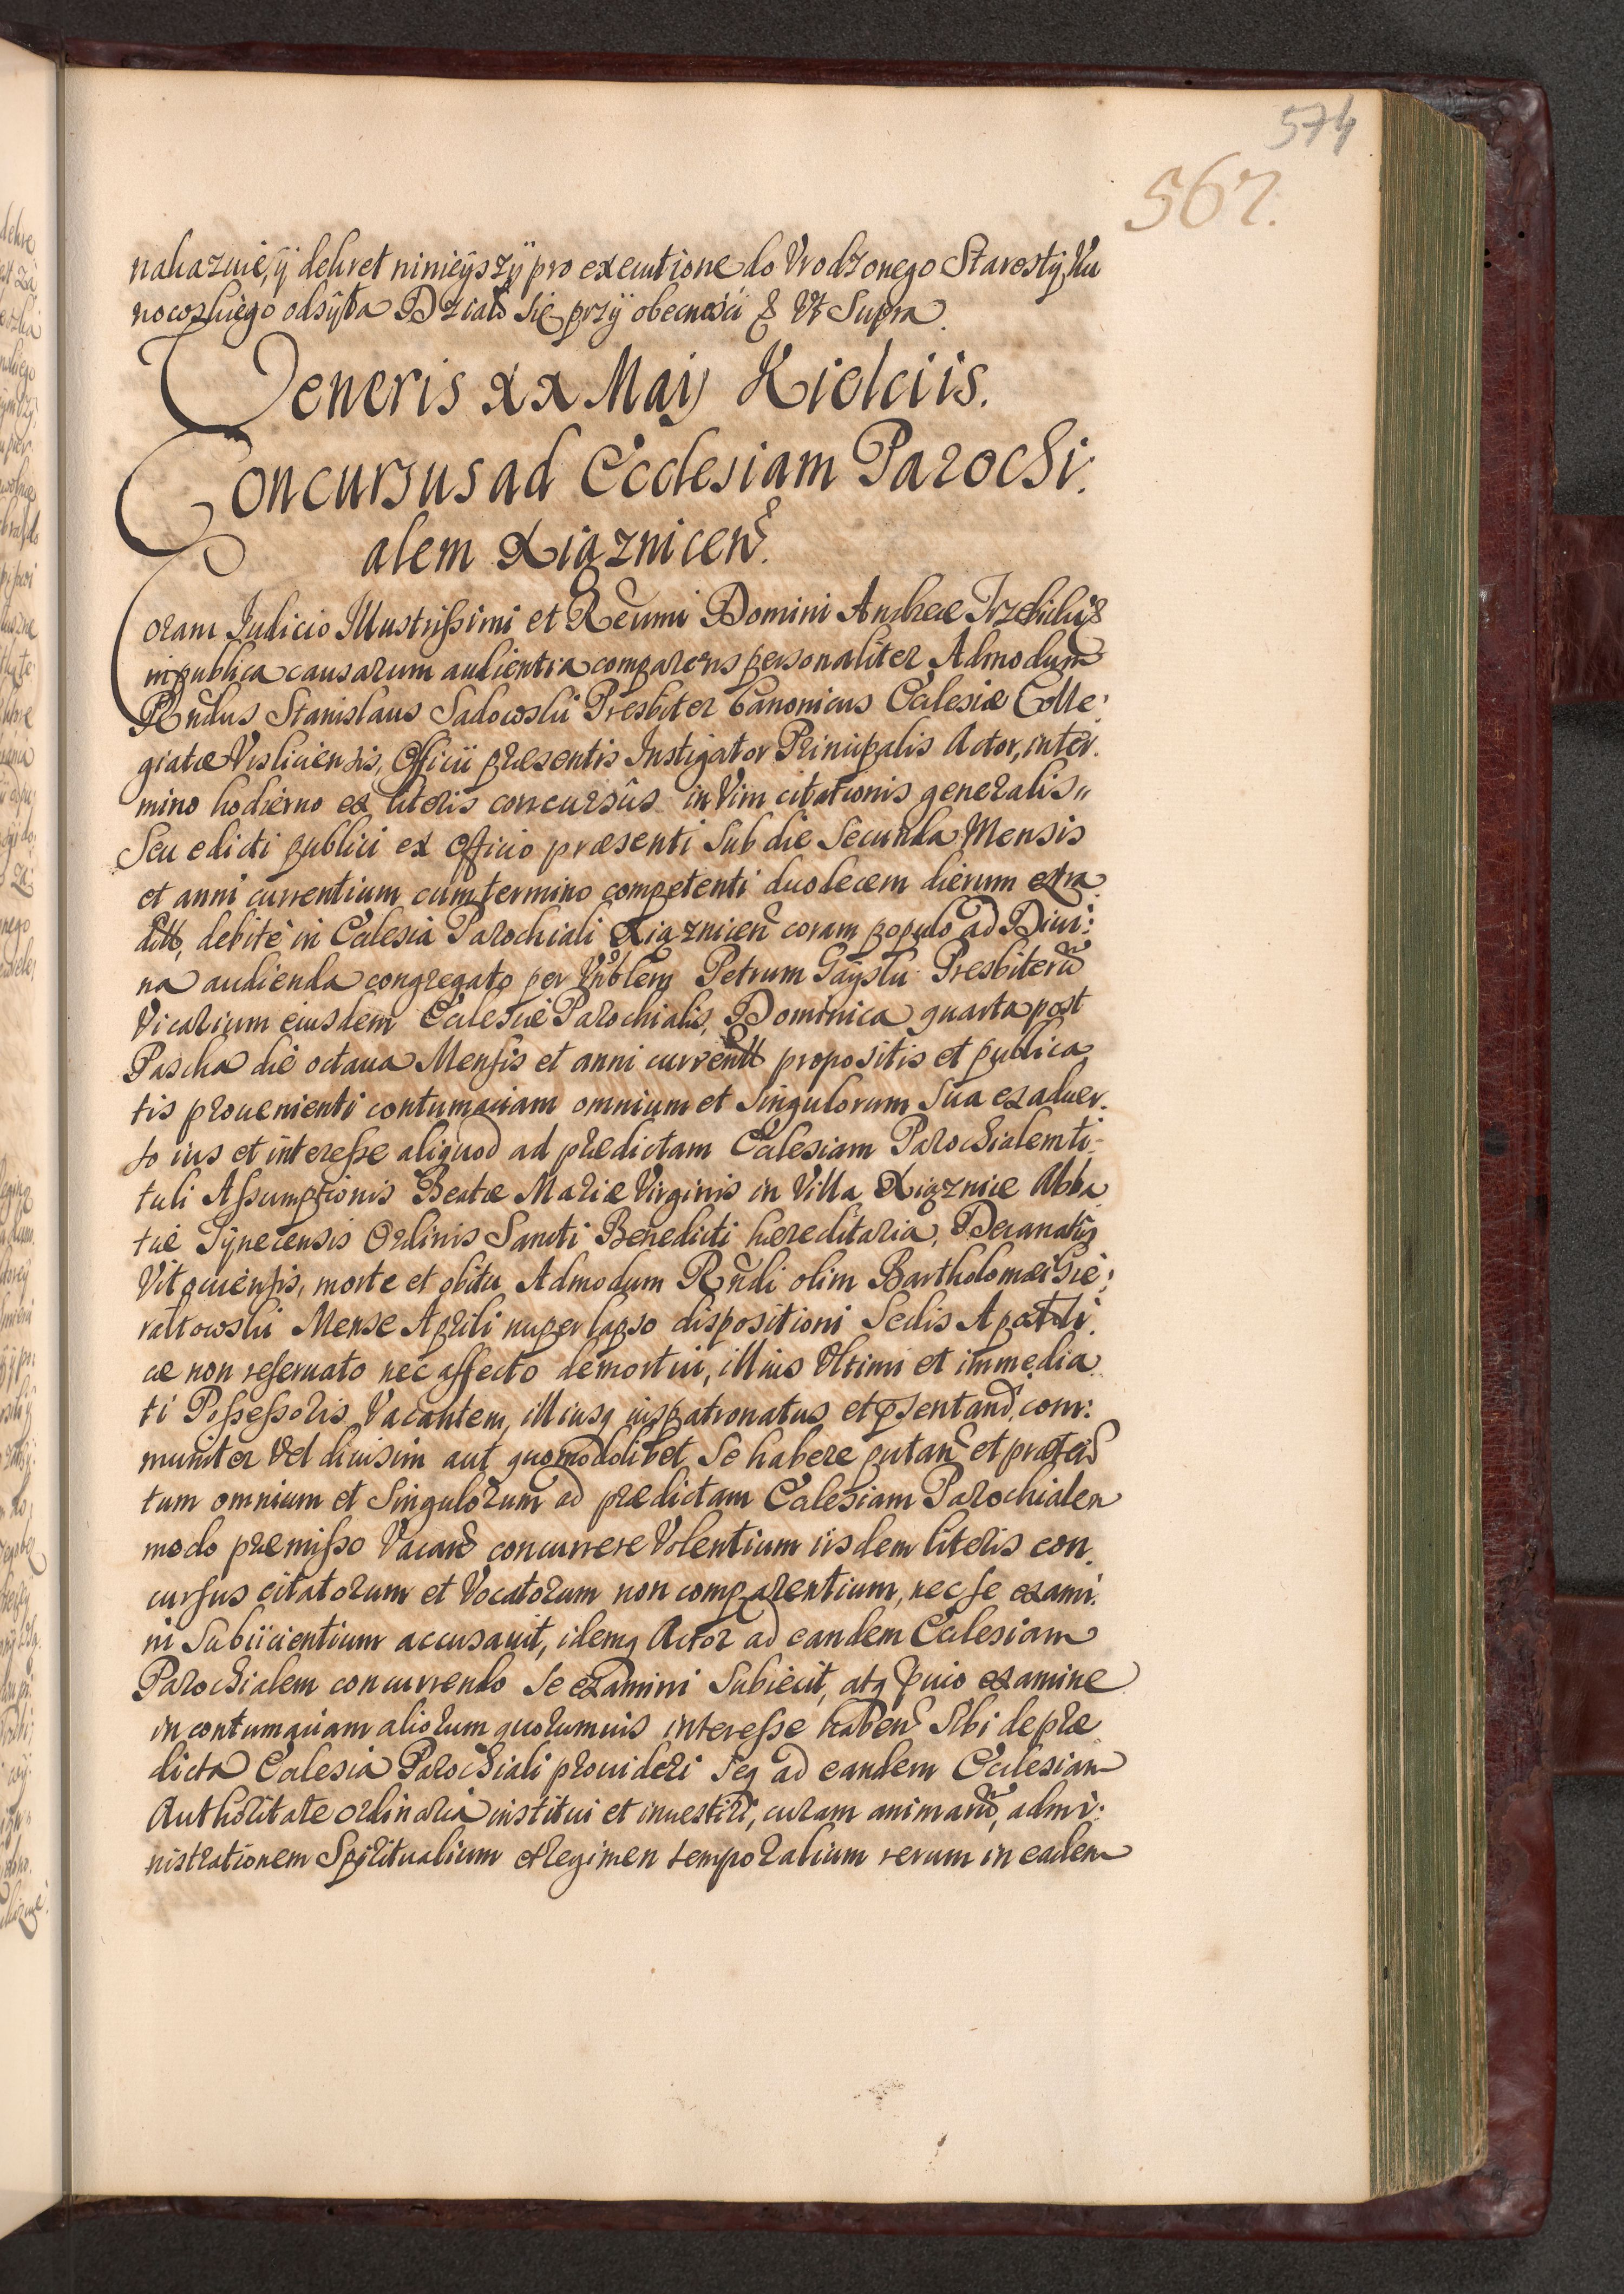 574
567.
nakazuie, ÿ dekret ninieÿszÿ pro executione do Vrodzonego Starostÿ Ku
nowskiego odsÿła Działo się przÿ obecnosci & Vt Supra.
Veneris xx Maij Kielciis.
Concursus ad Ecclesiam Parochi:
alem Xiąznicen.
Coram Judicio Illustrissimi et Reumi Domini Andreæ Trzebicky &
in publica causarum audientia comparens personaliter Admodum
Rndus Stanislaus Sadowski Presbiter Canonicus Ecclesiæ Colle:
giatæ Visliciensis, Officii præsentis Instigator Principalis Actor, in ter.
mino hodierno ex literis concursûs in Vim citationis generalis
Seu edicti publici ex Officio præsenti Sub die Secunda Mensis
et anni currentium cum termino competenti duodecem dierum extra
ditt, debitè in Ecclesia Parochiali Xiąznicen coram populo ad Diui:
na audienda congregato per Vnblem Petrum Gaÿski Presbiterũ
Vicarium eiusdem Ecclesiæ Parochialis, Dominica quarta post
Pascha die octaua Mensis et anni currentt propositis et publica
tis prouenienti contumaciam omnium et Singulorum Sua ex aduer.
so ius et interesse aliquod ad prædictam Ecclesiam Parochialem ti-
tuli Assumptionis Beatæ Mariæ Virginis in Villa Xiąznice Abba
tiæ Tÿnecensis Ordinis Sancti Benedicti hæreditaria, Decanatus
Vitouiensis, morte et obitu Admodum Rndi olim Bartholomæi Gie:
raltowski Mense Aprili nuper lapso dispositioni Sedis Apostoli.
cæ non reseruato nec affecto demortui, illius Vltimi et immedia
ti Possessoris Vacantem, illiusq iuspatronatus et præsentand, com:
muniter Vel diuisim aut quomodolibet Se habere putan et præten
tum omnium et Singulorum ad prædictam Ecclesiam Parochialem
modo præmisso Vacan concurrere Volentium iisdem literis con.
cursus citatorum et Vocatorum non comparentium, nec se exami.
ni Subiicientium accusauit, idemq Actor ad eandem Ecclesiam
Parochialem concurrendo Se examini Subiecit, atq præuio examine
in contumaciam aliorum quorumuis interesse haben Sibi de præ
dicta Ecclesia Parochiali prouideri Seq ad eandem Ecclesiam
Authoritate ordinaria institui et inuestiri, curam animarũ, admi:
nistrationem Spiritualium et regimen temporalium rerum in eadem